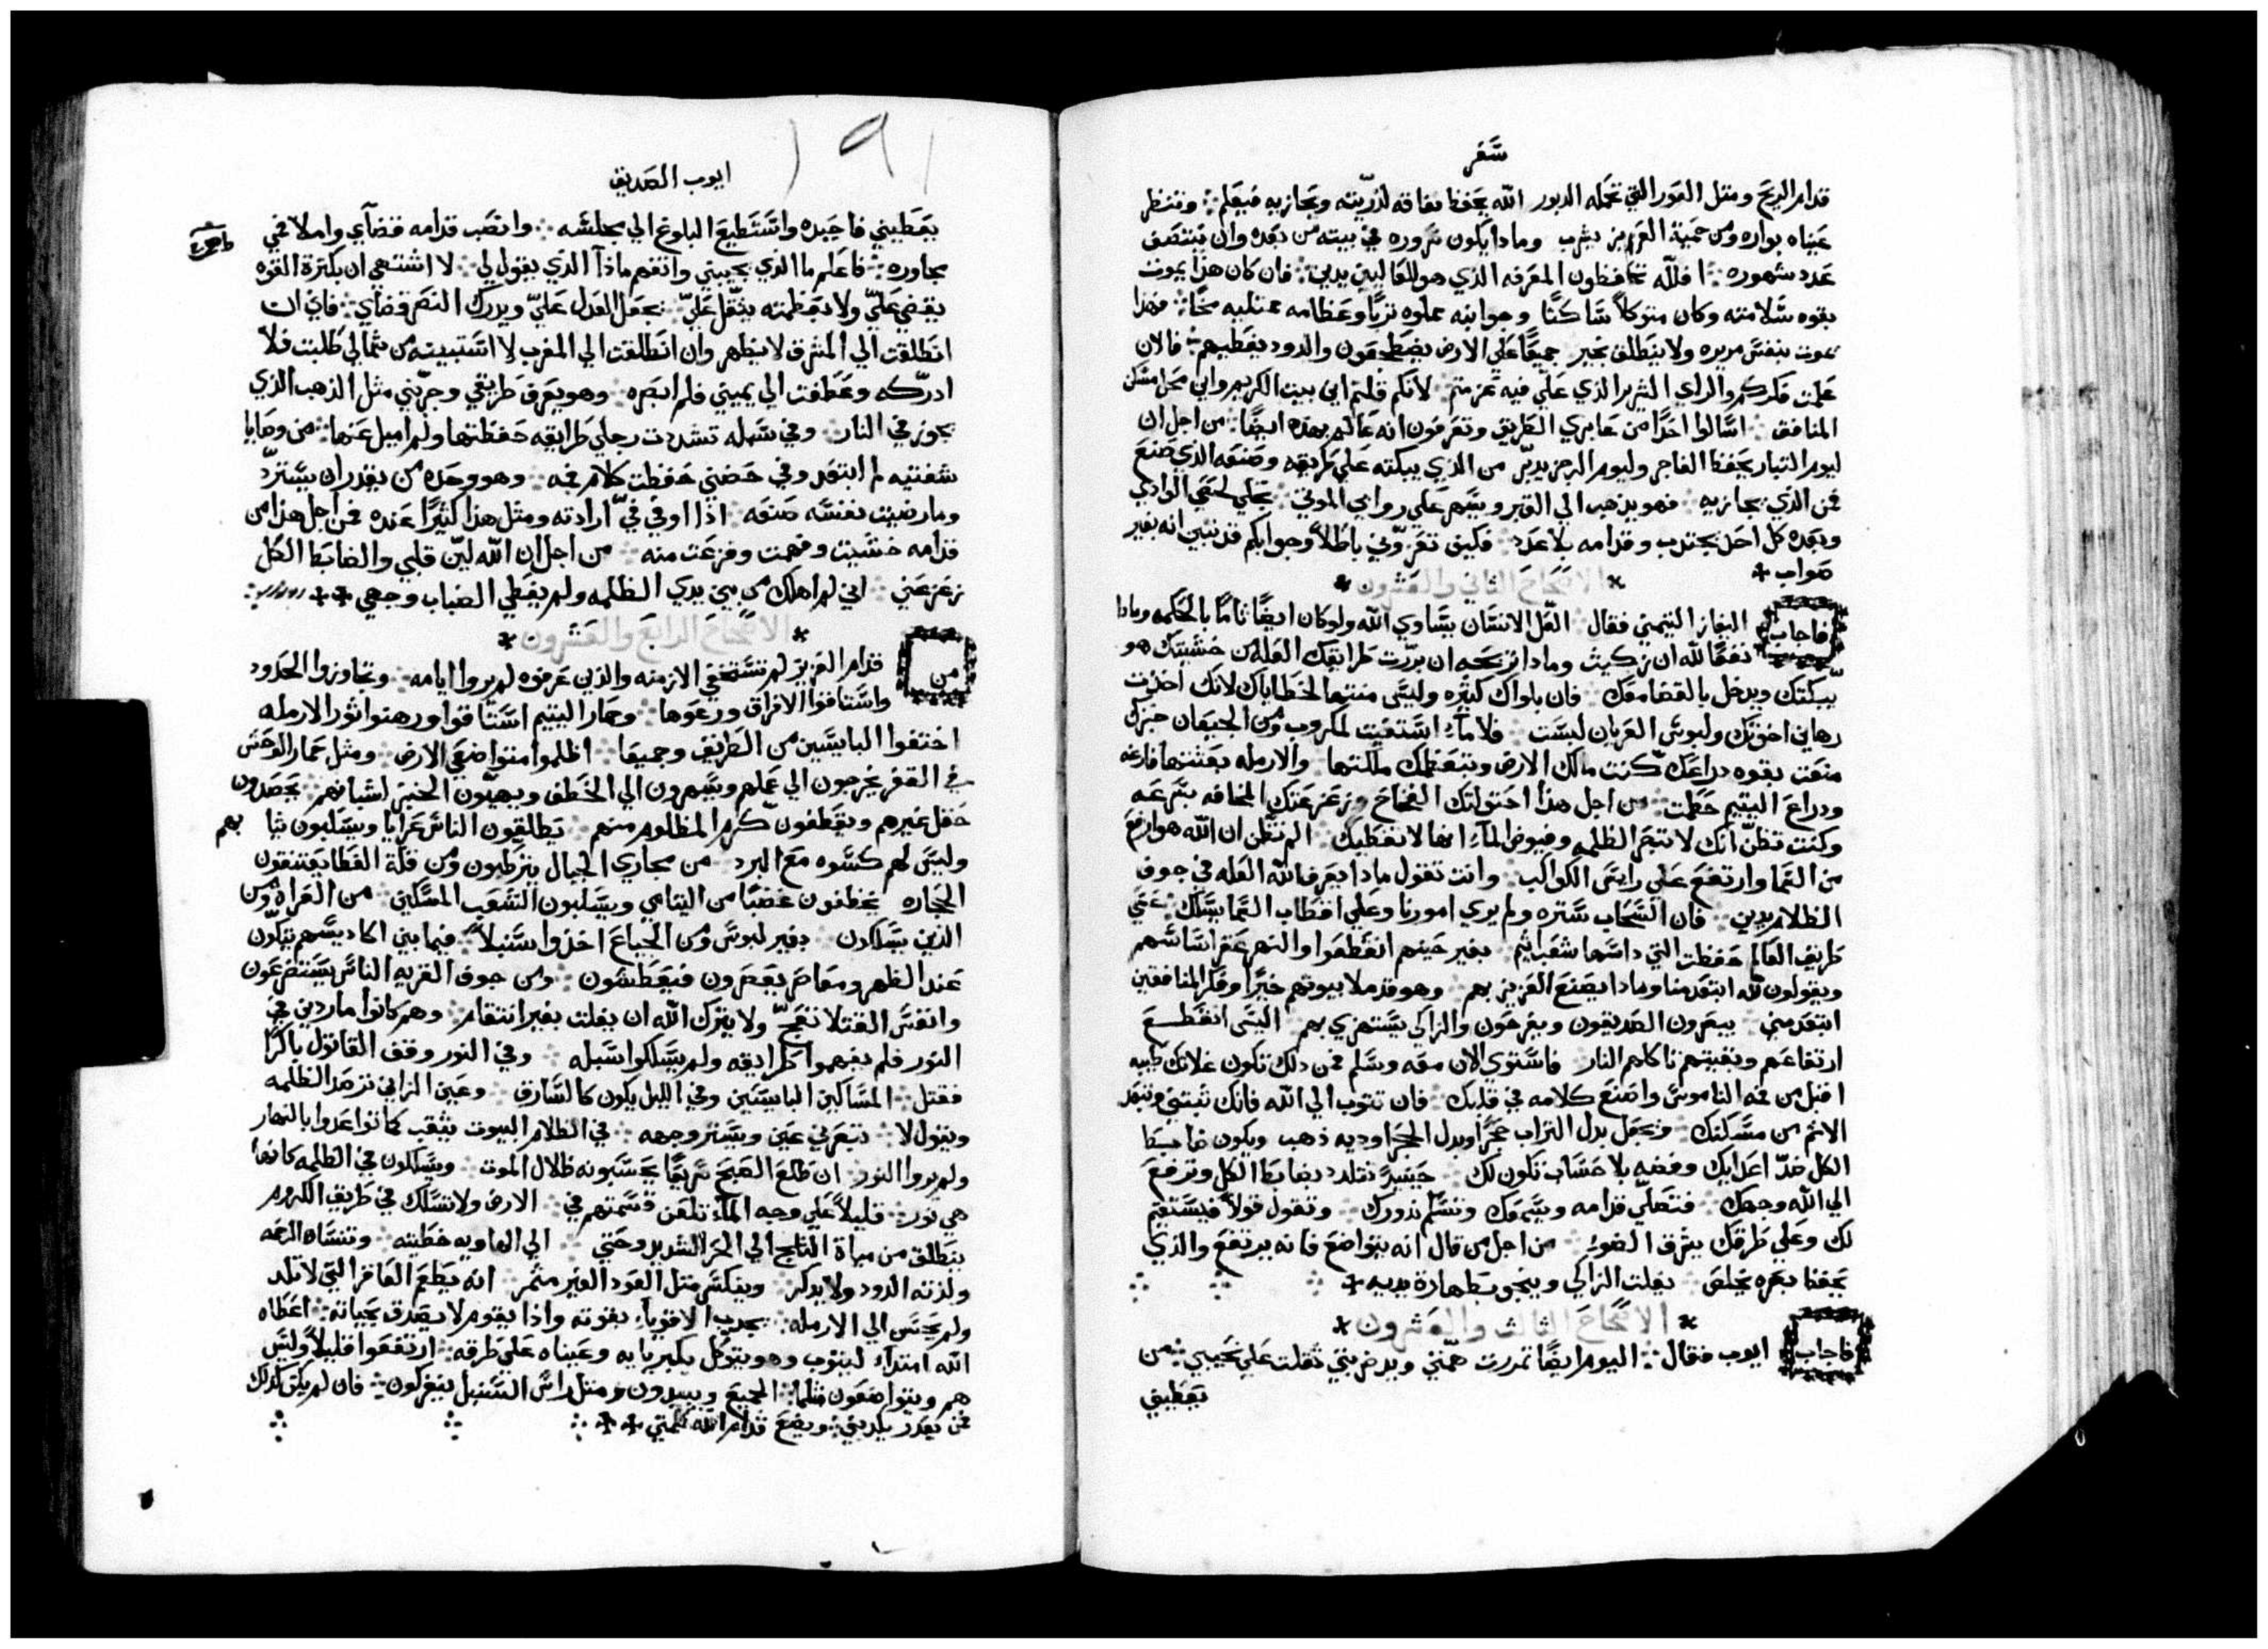 سفر
قدام الريح ومثل العور التي تحمله الدبور الله يحفظ نفاقه لذريته ويجازيه فيعلم وتنظر
عيناه بواره ومن حمية العزيز يشرب وماذا يكون سروره في بيته من بعده وان ينتصف
عدد شهوره افلله تحافظون المعرفه الذي هو للعاليين يدين فان كان هذا يموت
بقوه سلامته وكان متوكلاً ساكنًا وجوانبه مملوه تربًا وعظامه ممتليه مخًا فهذا
يموت بنفس مريره ولا ينطلق بخير جميعًا علي الارض يضطجعون والدود يغطيهم فالان
علمت فكركم والراي الشرير الذي علي فيه عزمتم لانكم قلتم اين بيت الكريم واين محل مسكن
المنافق اسالوا احدًا من عابري الطريق وتعرفون انه عالم بهذه ايضًا من اجل ان
ليوم التبار يحفظ الفاجر وليوم الرجز يدبر من الذي يبكته علي طريقه وصنعه الذي صنع
فمن الذي يجازيه فهو يذهب الي القبر ويسهر علي روابي الموتي تحلي لحقي الوادي
وبعده كل احد يجتدب وقدامه بلا عدد فكيف تعزوني باطلاً وجوابكم قد تبين انه بغير
صواب
الاصحاح الثاني والعشرون
فاجاب اليفاز التيمني فقال العل الانسان يساوي الله ولو كان ايضًا تامًا بالحكمه وماذا
نفعًا لله ان زكيت وماذا تربحه ان بررت طرايقك العله من خشيتك هو
يبكتك ويدخل بالقضا معك فان بلواك كثيره وليس منتها لخطاياك لانك اخذت
رهاين اخوتك ولبوس العريان لبست فلا ماء استقيت لمكروب ومن الجيعان خبزك
منعت بقوه ذراعك كنت مالك الارض وبتعظمك ملكتها والارمله بعثتها فارغه
وذراع اليتيم حطمت من اجل هذا احتولتك الفخاخ وزعزعتك المخافه بسرعه
وكنت تظن انك لا تبصر الظلمه وفيوض الماء انها لا تغطيك الم تظن ان الله هو ارفع
من السما وارتفع علي راس الكواكب وانت تقول ماذا يعرف الله العله في جوف
الظلام يدين فان السحاب ستره ولم يري امورنا وعلي اقطاب السما يسلك عني
طريق العالم حفظت التي داسها شعب اثم بغير حينهم انقطعوا والنهر غمر اساسهم
ويقولون لله ابتعد منا وماذا يصنع العزيز بهم وهو قد ملا بيوتهم خيرًا وفكر المنافقين
ابتعد مني يبصرون الصديقون ويفرحون والزاكي يستهزي بهم اليس انقطع
ارتفاعهم وبقيتهم تاكلهم النار فاستوي الان معه وسلم فمن ذلك تكون غلاتك طيبه
اقبل من فمه الناموس واضع كلامه في قلبك فان تتوب الي الله فانك تبتني وتبعد
الاثم من مسكنك وتجعل بدل التراب حجرًا وبدل الحجر اوديه ذهب ويكون ضابط
الكل ضد اعدايك وفضه بلا حساب تكون لك حينيذٍ تتلذذ بضابط الكل وترفع
الي الله وجهك فتصلي قدامه ويسمعك وتسلم نذورك وتقول قولاً فيستقيم
لك وعلي طرقك يشرق الضوء من اجل من قال انه يتواضع فانه يرتفع والذي
يحفظ بصره يخلص يفلت الزاكي وينجو بطهارة يديه
الاصحاح الثالث والعشرون
فاجاب ايوب فقال اليوم ايضًا تمررت همتي ويد ضربتي ثقلت علي نحيبي من
يعطيني
١٩١
ايوب الصديق
يعطيني فاجده واستطيع البلوغ الي مجلسه وانصب قدامه قضاي واملا في
بحاوره فاعلم ما الذي يجيبني وافهم ماذا الذي يقول لي لا اشتهي ان بكثرة القوه
يقضي علي ولا بعظمته يثقل علي يجعل العدل علي ويدرك النصر قضاي فاي ان
انطلقت الي المشرق لا يظهر وان انطلقت الي المغرب لا استبينه من شمالي طلبت فلا
ادركه وعطفت الي يميني فلم ابصره وهو يعرف طريقي وجربني مثل الذهب الذي
يجوز في النار وفي سبله تشددت رجلي طرايقه حفظتها ولم اميل عنها من وصايا
شفتيه لم ابتعد وفي حضني حفظت كلام فمه وهو وحده من يقدر ان يسترد
وما رضيت نفسه صنعه اذا اوفي في ارادته ومثل هذا كثيرًا عنده فمن اجل هذا من
قدامه خشيت وفهمت وفزعت منه من اجل ان الله لين قلبي والضابط الكل
زعزعني اني لم اهلك من بين يدي الظلمه ولم يغطي الضباب وجهي
الاصحاح الرابع والعشرون
من قدام العزيز لم تستخفي الازمنه والذين عرفوه لم يروا ايامه وتجاوزوا الحدود
واستاقوا الافراق ورعوها وحمار اليتيم استاقوا ورهنوا ثور الارمله
اختفوا البايسين من الطريق وجميعا اظلموا متواضعي الارض ومثل حمار الوحش
في القفر يخرجون الي عملهم ويسهرون الي الخطف ويهيون الخبز لشبانهم يحصدون
حقل غيرهم ويقطفون كرم المظلوم منهم يطالقون الناس عرايا ويسلبون ثيابهم
وليس لهم كسوه مع البرد من مجاري الجبال يترطبون ومن قلة الغطا يعتنقون
الحجاره يخطفون غصبًا من اليتامي ويسلبون الشعب المسكين من العراه ومن
الذين يسلكون بغير لبوس ومن الجياع اخذوا سنبلاً فيما بين اكاديسهم يتكون
عند الظهر ومعاصر يعصرون فيعطشون ومن جوف القريه الناس يستضرعون
وانفس القتلا تعج ولا يترك الله ان يفلت بغير انتقام وهم كانوا ماردين في
النور فلم يفهموا طرايقه ولم يسلكوا سبله وفي النور وقف القاتول باكرًا
فقتل المساكين البايسين وفي الليل يكون كالسارق وعين الزاني ترصد الظلمه
ويقول لا تبصرني عين ويستر وجهه في الظلام البيوت يثقب كما تواعدوا بالنهار
ولم يروا النور ان طلع الصبح سريعًا يحسبونه ظلال الموت ويسلكون في الظلمه كانها
هي نور قليلاً علي وجه الماء تلعن قسمتهم في الارض ولا تسلك في طريق الكروم
ينطلق من مياة الثلج الي الحر الشديد وحتي الي الهاويه خطيته وتنساه الرحمه
ولذته الدود ولا يذكر وينكسر مثل العود الغير مثمر انه يطعم العاقر التي لا تلد
ولم يحسن الي الارمله يجذب الاقوياء بقوته واذا يقوم لا يصدق بحياته اعطاه
الله امتداء ليتوب وهو يتوكل بكبريايه وعيناه علي طرقه ارتفعوا قليلاً وليس
هم ويتواضعون مثلما الجميع ويبيدون ومثل راس السنبل يتفركون فان لم يكن كذلك
فمن يقدر يكذبني ويضع قدام الله كلمتي